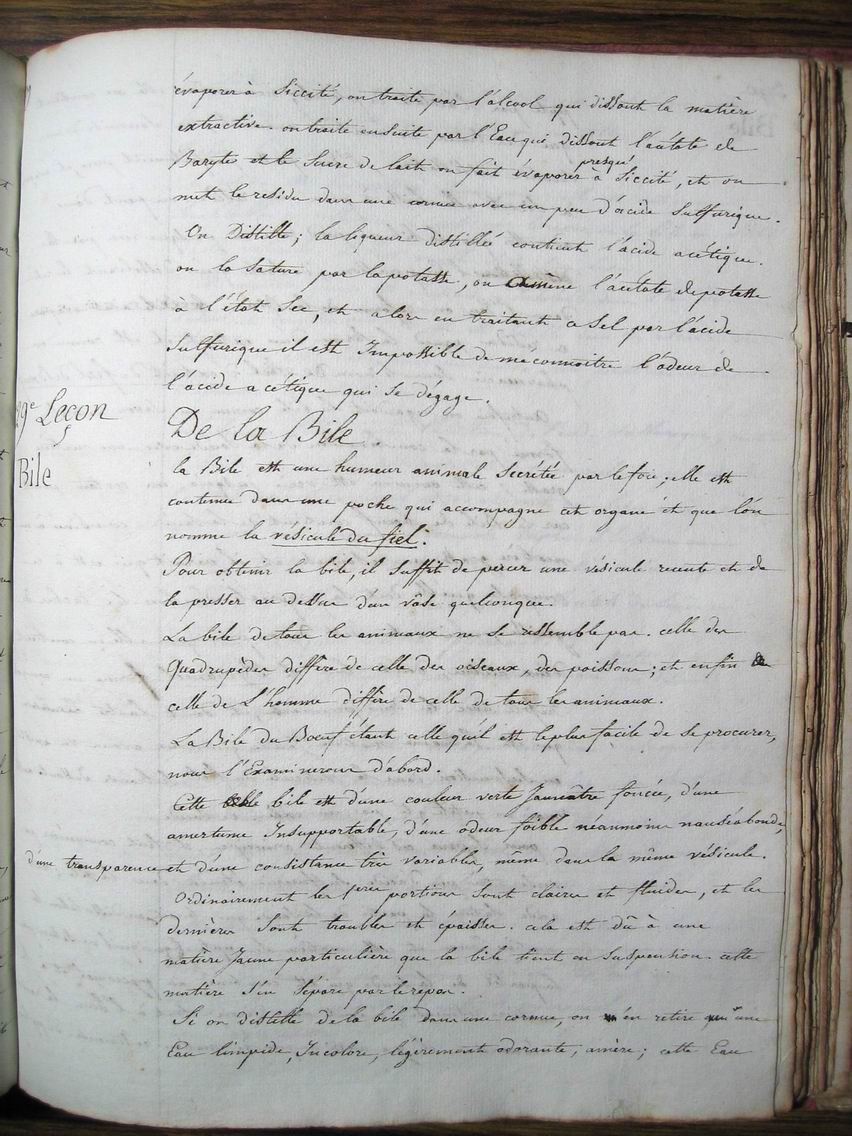 évaporer à Siccité, on traite par l'alcool qui dissout la matière
extractive. on traite ensuite par l'Eau qui dissout l'acétate de
Baryte et le Sucre de lait. on fait évaporer presqu'à Siccité, et on
met le residu dans une cornue avec un peu d'acide Sulfurique.
On Distille; la liqueur distillée contient l'acide acétique.
on la Sature par la potasse, on amène l'acétate de potasse
a l'état Sec, et alors en traitant ce Sel par l'acide
Sulfurique il est Impossible de meconnoitre l'odeur de
l'acide acétique qui se dégage.
29e Leçon
De la Bile
Bile
la Bile est une humeur animale Secrétée par le foie; elle est
contenue dans une poche qui accompagne cet organe et que l'on
nomme la vésicule du fiel.
Pour obtenir la bile, il Suffit de percer une vésicule recente et de
la presser au dessus d'un vâse quelconque.
La bile de tous les animaux ne se ressemble pas. celle des
Quadrupèdes diffère de celle des oiseaux, des poissons; et enfin
celle de L'homme diffère de celle de tous les animaux.
La Bile du Bœuf étant celle qu'il est le plus facile de se procurer,
nous l'Examinerons d'abord.
Cette bile est d'une couleur verte Jaunâtre foncée, d'une
amertume Insupportable, d'une odeur foible néanmoins nauséabonde,
d'une transparence et d'une consistance très variables, même dans la même vésicule.
Ordinairement les 1eres portions Sont claires et fluides, et les
dernières Sont troubles et épaisses. cela est dû à une
matière Jaune particulière que la bile tient en Suspension. cette
matière S'en Sépare par le repos.
Si on distille de la bile dans une cornue, on en retire une
Eau limpide, Incolore, légèrement odorante, amère; cette Eau